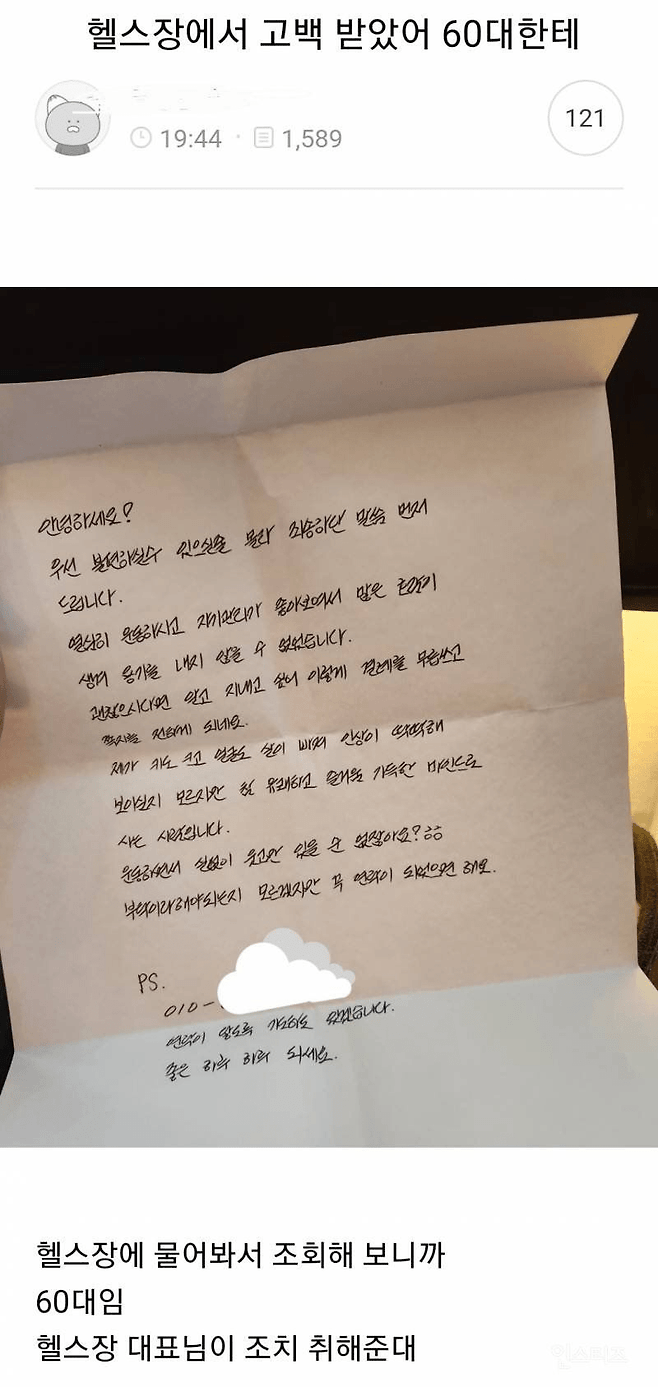 헬스장에서 고백 받았어 60대한테
19:44 · 1,589
121
안녕하세요?
우선 불편하실수 있으실줄 몰라 죄송하단 말씀 먼저
드립니다.
열심히 운동하시고 자기관리가 좋아보여서 많은 호감이
생겨 용기를 내지 않을 수 없었습니다.
괜찮으시다면 알고 지내고 싶어 이렇게 결례를 무릅쓰고
쪽지를 전하게 되네요.
제가 키도 크고 얼굴도 살이 빠져 인상이 딱딱해
보이실지 모르지만 참 유쾌하고 즐거움 가득한 마인드로
사는 사람입니다.
운동하면서 실없이 웃고만 있을 순 없잖아요?
부탁이라해야되는지 모르겠지만 꼭 연락이 되었으면 해요.
PS.
010-
연락이 닿도록 기도하고 있겠습니다.
좋은 하루 하루 되세요.
헬스장에 물어봐서 조회해 보니까
60대임
헬스장 대표님이 조치 취해준대
인스티즈